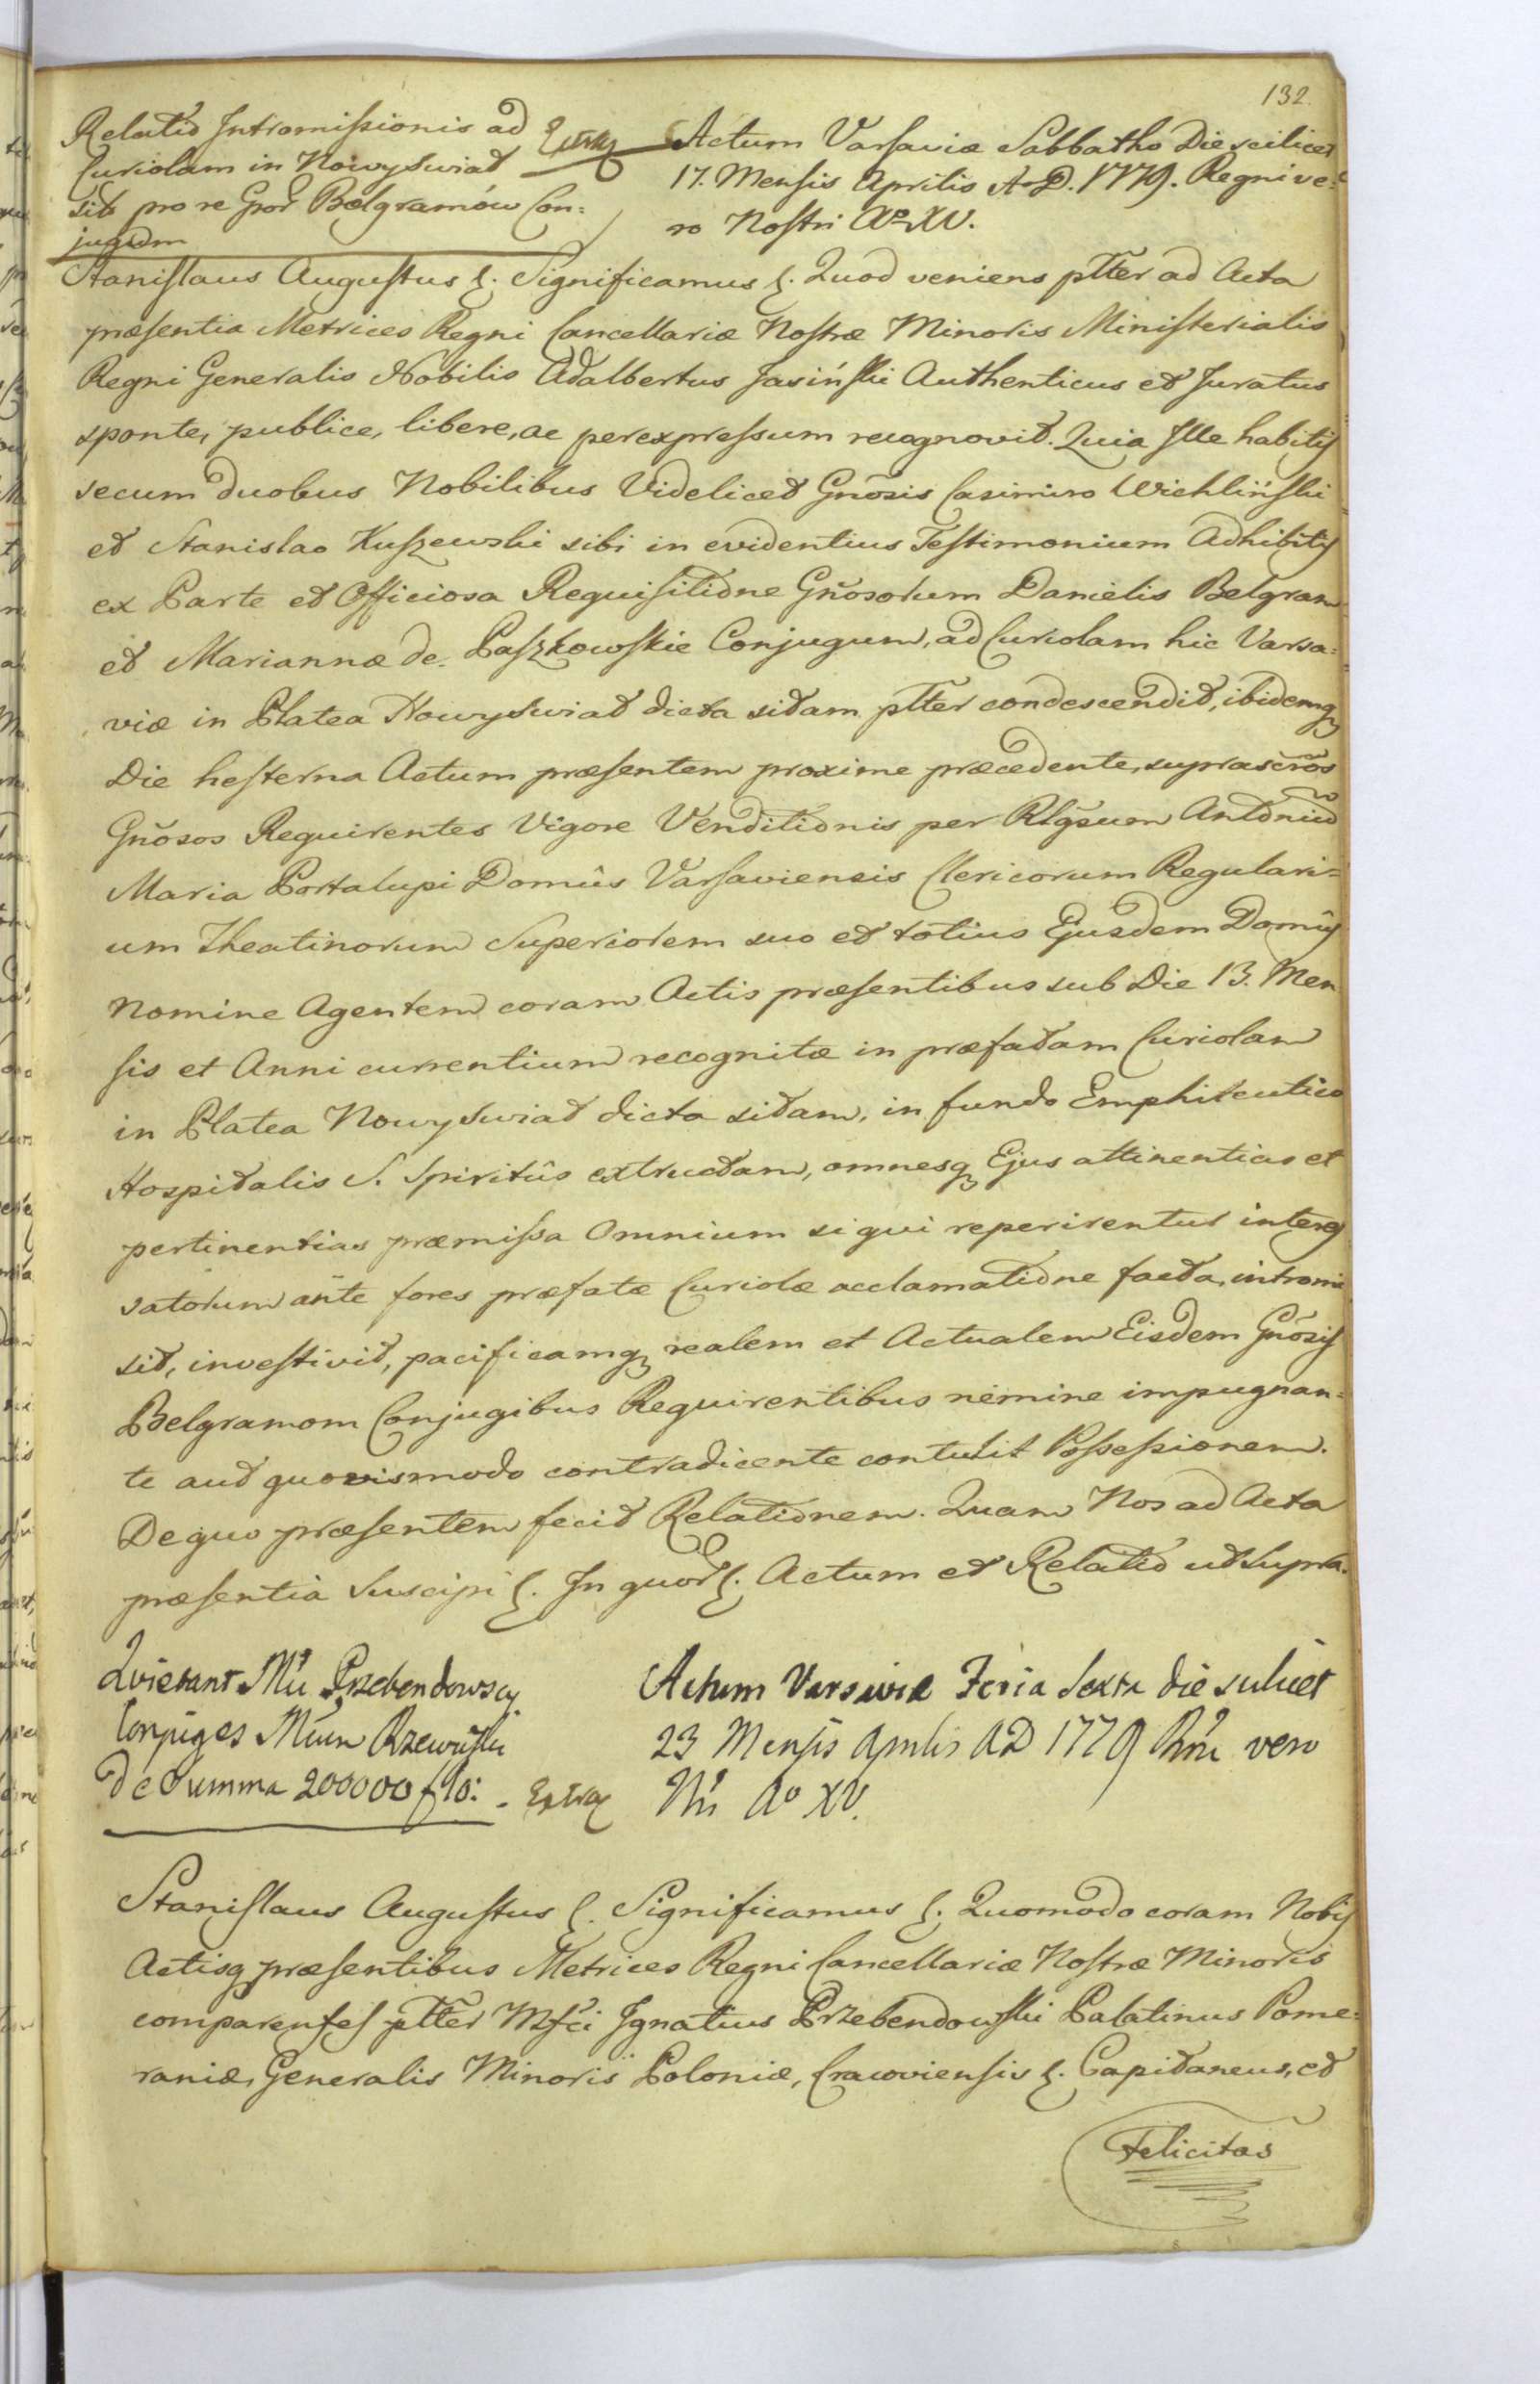 132.
Relatio Intromissionis ad
Curiolam in Nowyswiat
sit pro re Gnor Belgramów Con:
jugum
Extra
Actum Varsaviæ Sabbatho Die scilicet
17. Mensis Aprilis A. D. 1779. Regni ve:
ro Nostri Ao XV.
Stanislaus Augustus &. Significamus &. Quod veniens ptter ad Acta
præsentia Metrices Regni Cancellariæ Nostræ Minoris Ministerialis
Regni Generalis Nobilis Adalbertus Jasiński Authenticus et Juratus
sponte, publice, libere, ac per expressum recognovit. Quia Ille habitis
secum duobus Nobilibus Videlicet Gnosis Casimiro Wichliński
et Stanislao Kuszewski sibi in evidentius Testimonium Adhibitis
ex Parte et Officiosa Requisitione Gnosorum Danielis Belgram
et Mariannæ de Paszkowskie Conjugum, ad Curiolam hic Varsa:
viæ in Platea Nowyswiat dicta sitam ptter condescendit, ibidemq
Die hesterna Actum præsentem proxime præcedente, suprascros
Gnosos Requirentes Vigore Venditionis per Rlgsum Antoniu
Maria Portalupi Domûs Varsaviensis Clericorum Regulari=
um Theatinorum Superiorem suo et totius Ejusdem Domûs
Nomine Agentem coram Actis præsentibus sub Die 13. Men
sis et Anni currentium recognitæ in præfatam Curiolam
in Platea Nowyswiat dicta sitam, in fundo Emphiteutico
Hospitalis S. Spiritûs extructam, omnesq Ejus attinentias et
pertinentias præmissa Omnium si qui reperirentur intereς
satorum ante fores præfatæ Curiolæ acclamatione facta, intromi
sit, investivit, pacificamq realem et Actualem Eisdem Gnosis
Belgramom Conjugibus Requirentibus nemine impugnan=
te aut quovismodo contradicente contulit Possessionem.
De quo præsentem fecit Relationem. Quam Nos ad Acta
præsentia Suscipi &. In quor &. Actum et Relatio ut Supra.
Quietant Mci Przebendowscy
Conjuges Mcum Rzewuski
De Summa 200000 flo: - Extra
Actum Varsaviæ Feria Sexta die scilicet
23 Mensis Aprilis AD 1779 Rni vero
Nri Ao XV.
Stanislaus Augustus &. Significamus &. Quomodo coram Nobis
Actisq præsentibus Metrices Regni Cancellariæ Nostræ Minoris
comparentes ptter Mfci Ignatius Przebendowski Palatinus Pome:
raniæ, Generalis Minoris Poloniæ, Cracoviensis &. Capitaneus, et
Felicitas